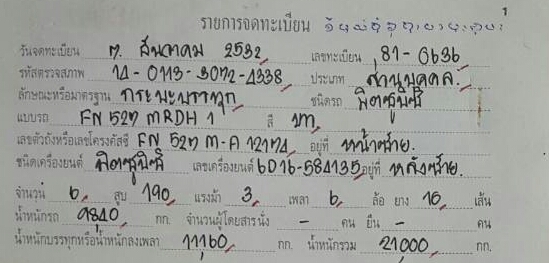 1
รายการจดทะเบียน
วันจดทะเบียน 7, ธันวาคม 2532 เลขทะเบียน 81-0636
รหัสตรวจสภาพ 14-0113-3072-4338 ประเภท ส่วนบุคคล
ลักษณะหรือมาตรฐาน กระบะบรรทุก ชนิดรถ มิตซูบิชิ
แบบรถ FN 527 MRDH 1 สี เทา
เลขตัวถังหรือเลขโครงคัสซี FN 527 M-A 12174 อยู่ที่ หน้าซ้าย
ชนิดเครื่องยนต์ มิตซูบิชิ เลขเครื่องยนต์ 6D16-584135 อยู่ที่ หลังซ้าย
จำนวน 6 สูบ 190 แรงม้า 3 เพลา 6 ล้อ ยาง 10 เส้น
น้ำหนักรถ 9840 กก. จำนวนผู้โดยสารนั่ง - คน ยืน - คน
น้ำหนักบรรทุกหรือน้ำหนักลงเพลา 11,160 กก. น้ำหนักรวม 21,000 กก.